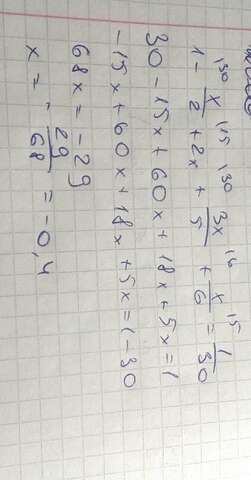 1 - x/2 + 2x + 3x/5 + x/6 = 1/30
30 - 15x + 60x + 18x + 5x = 1
-15x + 60x + 18x + 5x = 1 - 30
68x = -29
x = - 29/68 = -0,4